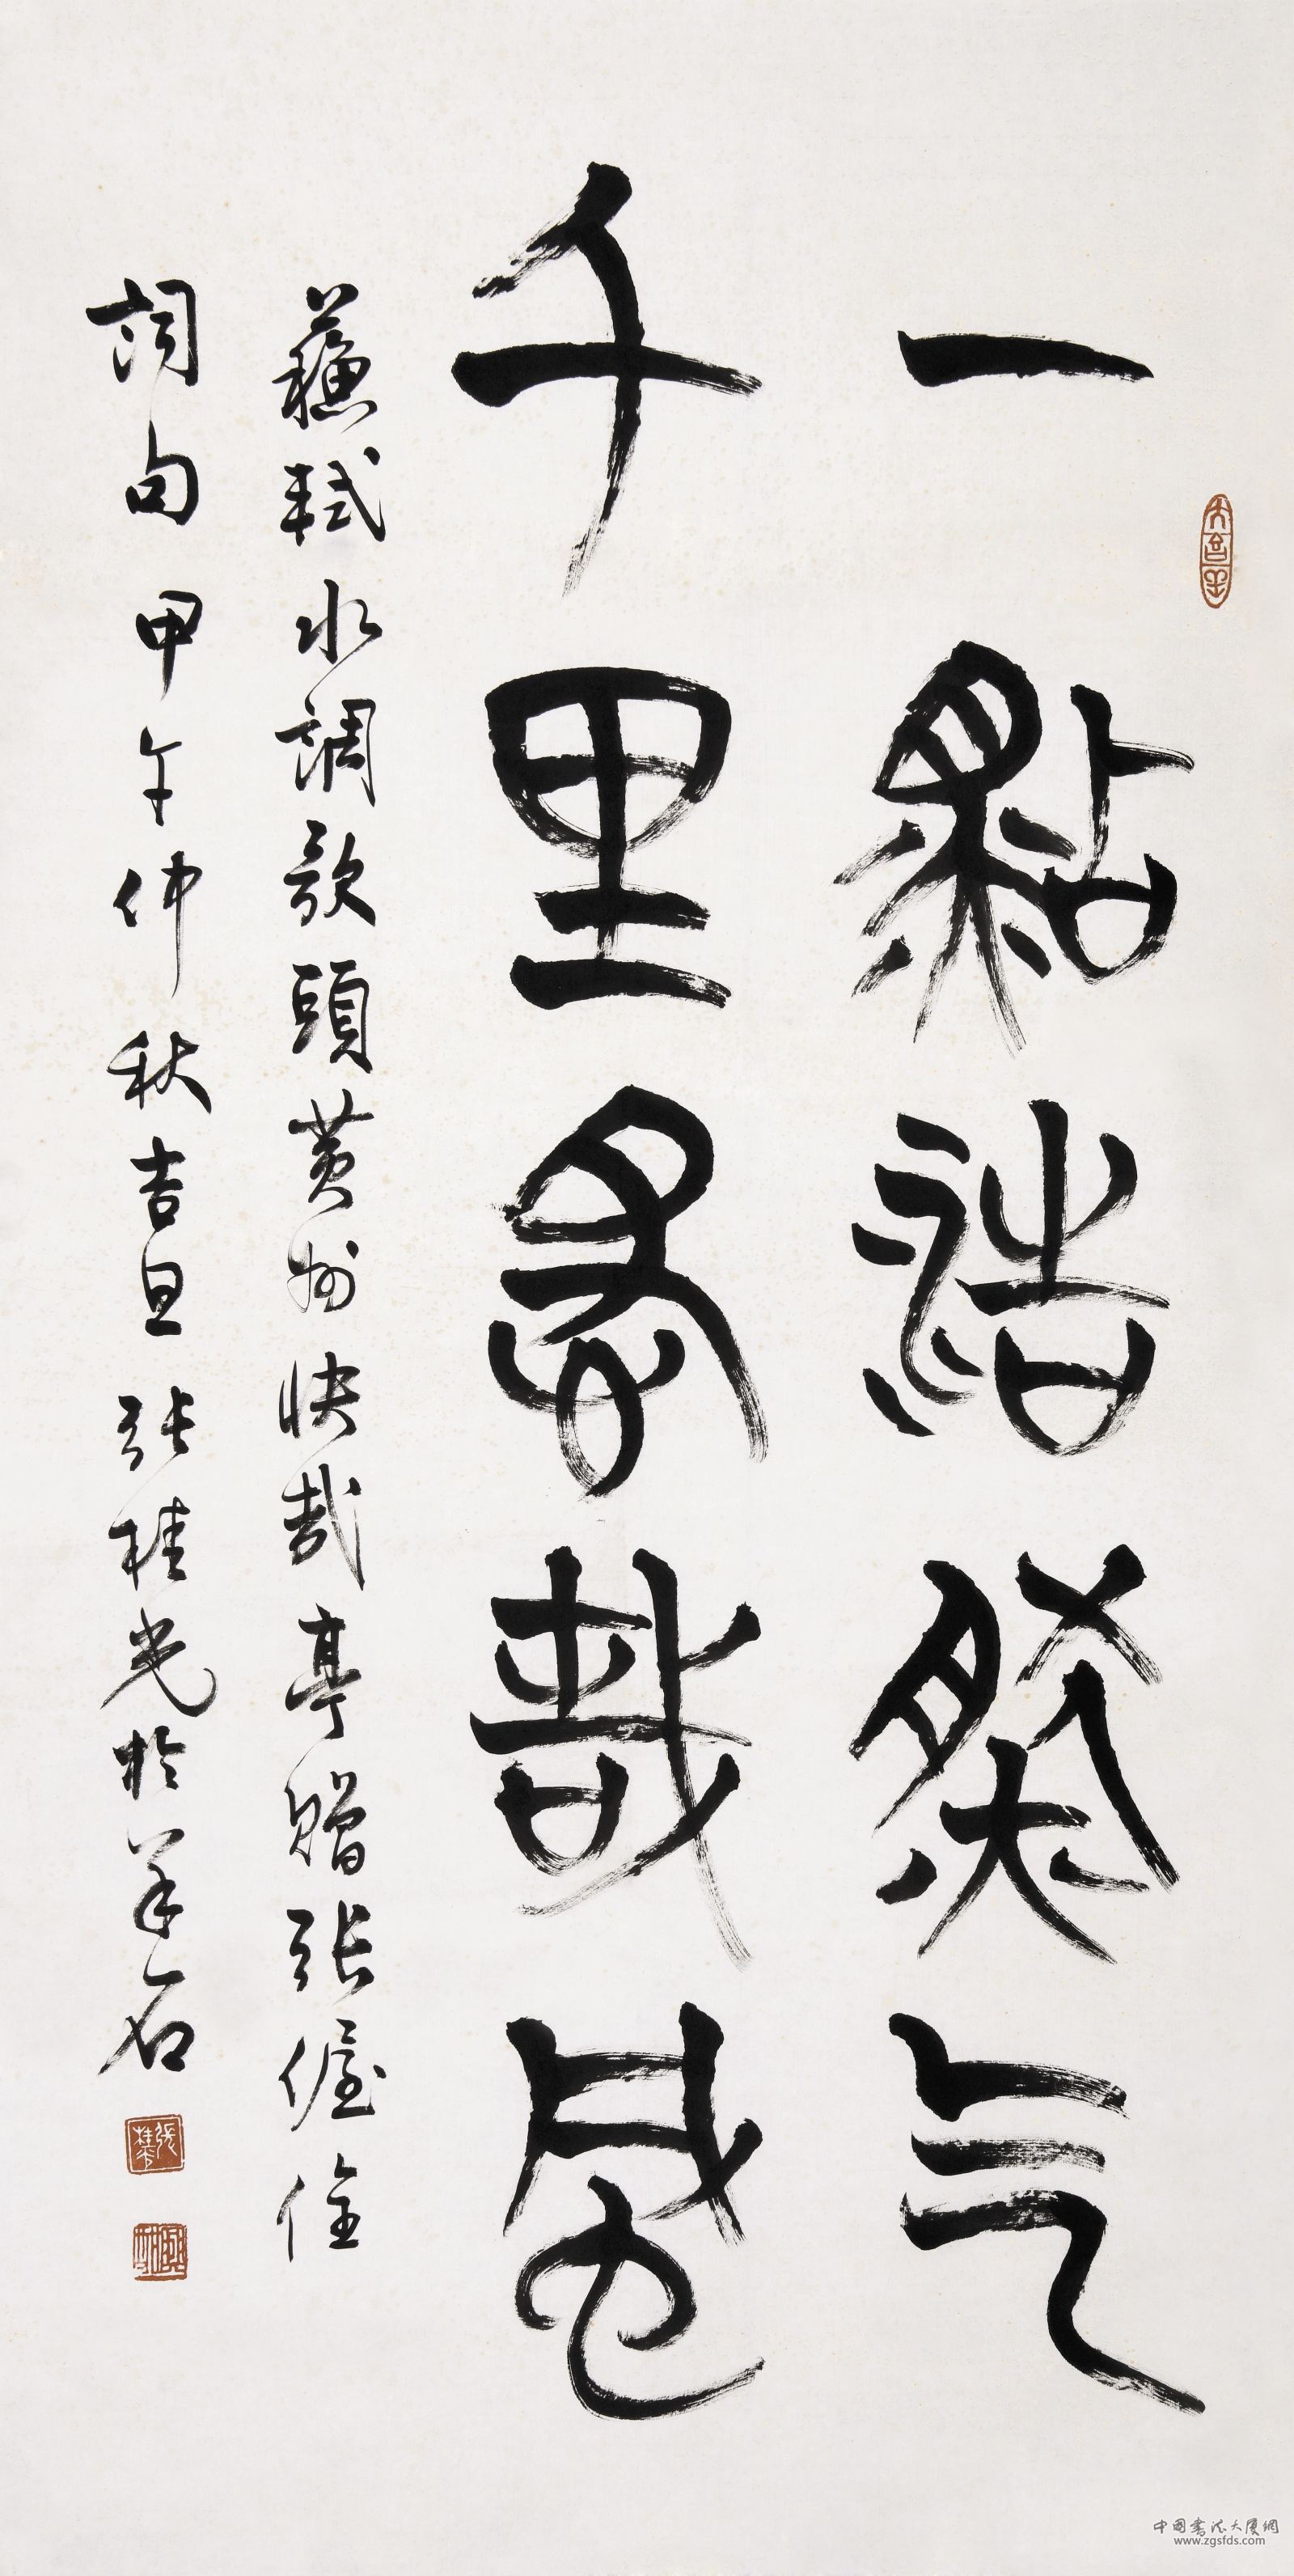 一點浩然气
千里快哉風
蘇軾水調歌頭黃州快哉亭贈張偓佺
詞句甲午仲秋吉旦張桂光於羊石
中國書法大厦網
www.zgsfds.com